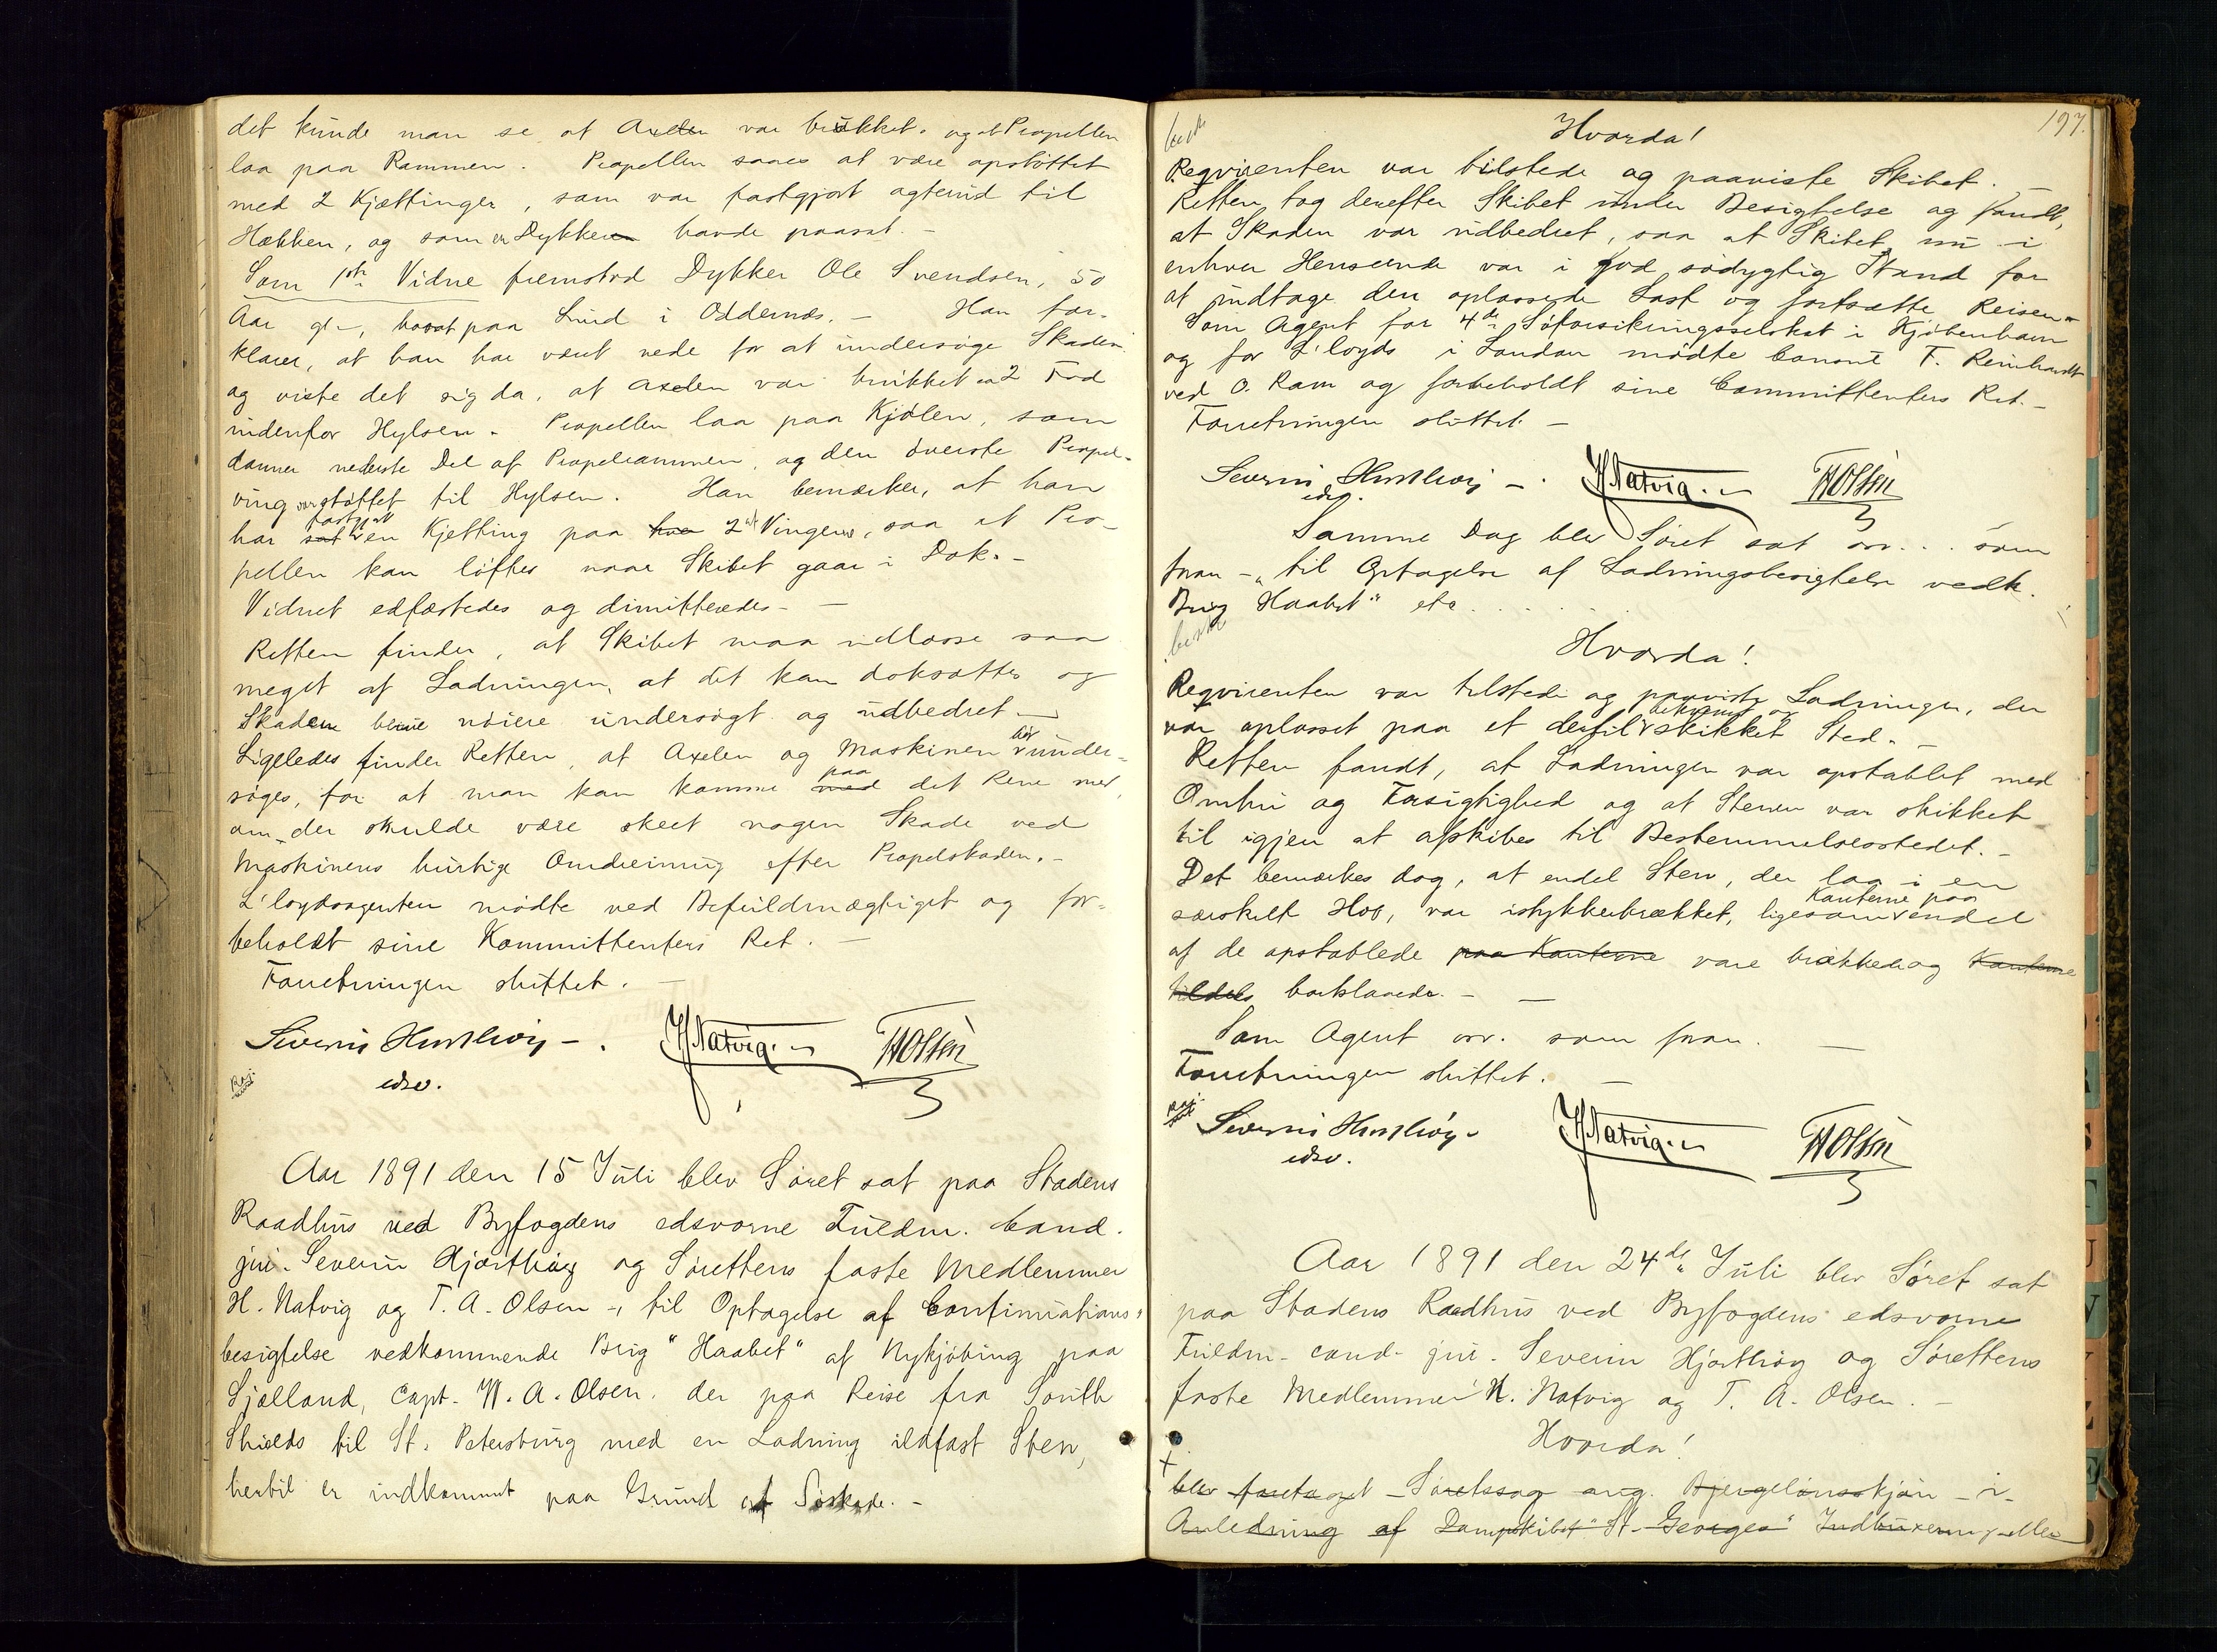 det kunde man se at Axelen var brækket og at Propellen
laa paa Rammen. Propellen saaes at være opstøttet
med 2 Kjættinger, som var fastgjort agterud til
Hækken, og som en Dykker havde paasat. -
Som 1ste Vidne fremstod Dykker Ole Svendsen, 50
Aar gl-, bosat paa Lund i Oddernæs. - Han for-
klarer, at han har været nede for at undersøge Skaden
og viste det sig da, at Axelen var brukket ca 2 Fod
indenfor Hylsen. Propellen laa paa Kjølen, som
danner nederste Del af Propelrammen, og den øverste Propel-
ving var støttet til Hylsen. Han bemærker, at han
har sat fastgjort en Kjetting paa hver 2 af Vingerne, saa at Pro-
pellen kan løftes naar Skibet gaar i Dok. -
Vidnet edfæstedes og dimitteredes - -
Retten finder, at Skibet maa udlosse saa
meget af Ladningen, at det kan doksættes og
Skaden blive nøiere undersøgt og udbedret -
Ligeledes finder Retten, at Axelen og Maskinen bør under-
søges, for at man kan komme med paa det Rene med,
om der skulde være skeet nogen Skade ved
Maskinens hurtige Omdreining efter Propelskaden. -
L'loydsagenten mødte ved Befuldmægtiget og for-
beholdt sine Kommittenters Ret. -
Forretningen sluttet. -
Severin Hjorthøy - . H Natvig. - TAOlsen
edsv.
Aar 1891 den 15 Juli blev Søret sat paa Stadens
Raadhus ved Byfogdens edsvorne Fuldm. Cand.
jur. Severin Hjorthøy og Sørettens faste Medlemmer
H. Natvig og T. A. Olsen -, til Optagelse af Continuations-
besigtelse vedkommende Brig "Haabet" af Nykjøbing paa
Sjælland, Capt. W. A. Olsen. der paa Reise fra South
Shields til St. Petersburg med en Ladning ildfast Sten,
hertil er indkommet paa Grund af Søskade. -
197.
Hvorda!
Reqvirenten var tilstede og paaviste Skibet. -
Retten tog derefter Skibet under Besigtelse og fandt,
at Skaden var udbedret, saa at Skibet nu i
enhver Henseende var i god sødygtig Stand for
at indtage den oplossede Last og fortsætte Reisen -
Som Agent for 4de Søforsikringsselskab i Kjøbenhavn
og for L'loyds i London mødte Consul F. Reinhardt
ved O. Ram og forbeholdt sine Committenters Ret. -
Forretningen sluttet -
Severin Hjorthøy - . H Natvig. - TAOlsen
edsv.
Samme Dag blev Søret sat osv. . . som
foran - til Optagelse af Ladningsbesigtelse vedk.
Brig "Haabet" etc . . . . . .
Hvorda!
Reqvirenten var tilstede og paaviste Ladningen, der
var oplosset paa et dertil bekvemt og skikket Sted. -
Retten fandt, at Ladningen var opstablet med
Omhu og Forsigtighed og at Stenen var skikket
til igjen at afskibes til Bestemmelsesstedet. -
Det bemærkes dog, at endel Sten, der laa i en
særskilt Hob, var istykkerbrækket, ligesom Kanterne paa endel
af de opstablede paa Kanterne vare brækkede og Kanterne
tildels bortslaaede. - -
Som Agent osv. som foran. -
Forretningen sluttet. -
Severin Hjorthøy - H Natvig. - TAOlsen
edsv.
Aar 1891 den 24de Juli blev Søret sat
paa Stadens Raadhus ved Byfogdens edsvorne
Fuldm. cand. jur. Severin Hjorthøy og Sørettens
faste Medlemmer H. Natvig og T. A. Olsen. -
Hvorda!
blev foretaget Søretssag ang. Bjergelønsskjøn - i
Anledning af Dampskibet "St. Georges" Indbuxering eller